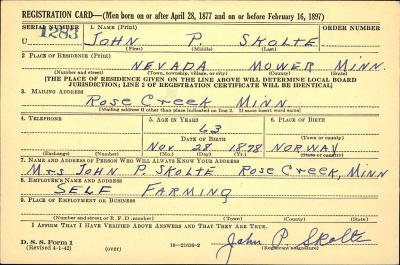 REGISTRATION CARD—(Men born on or after April 28, 1877 and on or before February 16, 1897)
SERIAL NUMBER 1. NAME (Print) ORDER NUMBER
U 1283 JOHN P. SKOLTE
(First) (Middle) (Last)
2. PLACE OF RESIDENCE (Print)
NEVADA MOWER MINN.
(Number and street) (Town, township, village, or city) (County) (State)
[THE PLACE OF RESIDENCE GIVEN ON THE LINE ABOVE WILL DETERMINE LOCAL BOARD
JURISDICTION; LINE 2 OF REGISTRATION CERTIFICATE WILL BE IDENTICAL]
3. MAILING ADDRESS
Rose Creek MINN.
[Mailing address if other than place indicated on line 2. If same insert word same]
4. TELEPHONE 5. AGE IN YEARS 6. PLACE OF BIRTH
63
DATE OF BIRTH (Town or county)
Nov 28 1878 NORWAY
(Exchange) (Number) (Mo.) (Day) (Yr.) (State or country)
7. NAME AND ADDRESS OF PERSON WHO WILL ALWAYS KNOW YOUR ADDRESS
Mrs JOHN P. SKOLTE Rose Creek, MINN
8. EMPLOYER'S NAME AND ADDRESS
SELF FARMING
9. PLACE OF EMPLOYMENT OR BUSINESS
(Number and street or R.F.D. number) (Town) (County) (State)
I AFFIRM THAT I HAVE VERIFIED ABOVE ANSWERS AND THAT THEY ARE TRUE.
D. S. S. Form 1
(Revised 4-1-42) (over) 16—21630-2 John P. Skolte
(Registrant's signature)